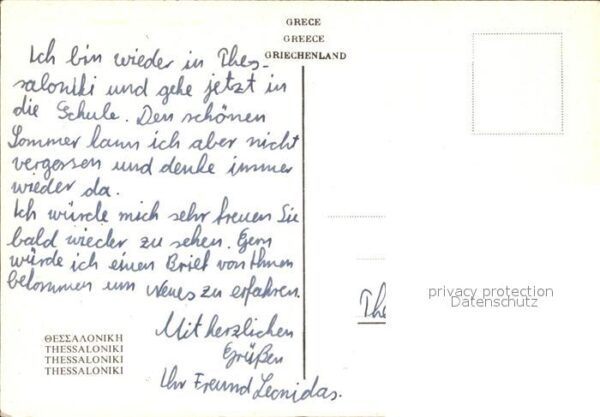 GRECE
GREECE
GRIECHENLAND
Ich bin wieder in Thes-
saloniki und gehe jetzt in
die Schule. Den schönen
Sommer kann ich aber nicht
vergessen und denke immer
wieder da.
Ich würde mich sehr freuen Sie
bald wieder zu sehen. Gern
würde ich einen Brief von Ihnen
bekommen um neues zu erfahren.
Mit herzlichen
Grüßen
Ihr Freund Leonidas.
ΘΕΣΣΑΛΟΝΙΚΗ
THESSALONIKI
THESSALONIKI
THESSALONIKI
The
privacy protection
Datenschutz